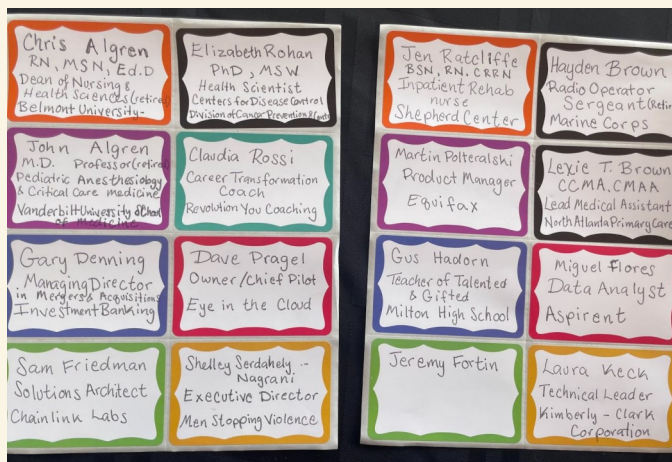 Chris Algren
RN, MSN, Ed.D
Dean of Nursing &
Health Sciences (retired)
Belmont University-
Elizabeth Rohan
PhD, MSW
Health Scientist
Centers for Disease Control
Division of Cancer Prevention &
John Algren
M.D. Professor (retired)
Pediatric Anesthesiology
& Critical Care medicine
Vanderbilt University School
of medicine
Claudia Rossi
Career Transformation
Coach
Revolution You Coaching
Gary Denning
Managing Director
in Mergers & Acquisitions
Investment Banking
Dave Pragel
Owner/Chief Pilot
Eye in the Cloud
Sam Friedman
Solutions Architect
Chainlink Labs
Shelley Serdahely -
Nagrani
Executive Director
Men Stopping Violence
Jen Ratcliffe
BSN, RN, CRRN
Inpatient Rehab
nurse
Shepherd Center
Hayden Brown
Radio Operator
Sergeant
Marine Corps
Martin Polteralski
Product Manager
Equifax
Lexie T. Brown
CCMA, CMAA
Lead Medical Assistant
North Atlanta Primary Care
Gus Hadorn
Teacher of Talented
& Gifted
Milton High School
Miguel Flores
Data Analyst
Aspirent
Jeremy Fortin
Laura Keck
Technical Leader
Kimberly-Clark
Corporation